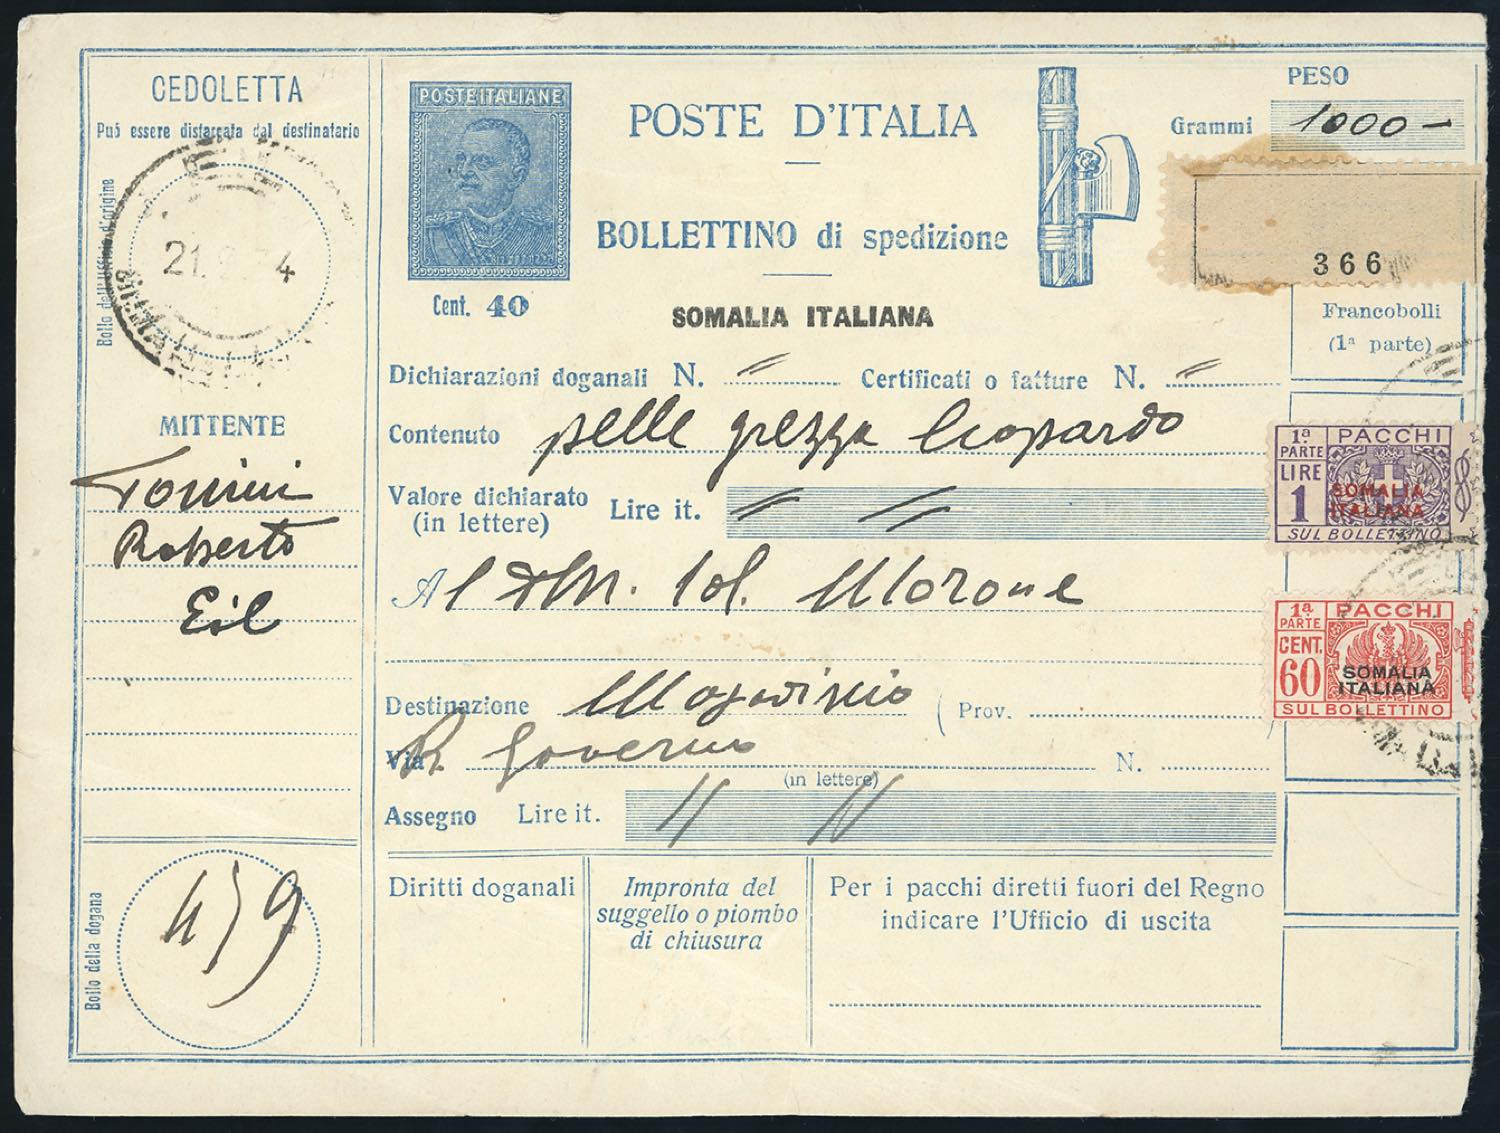 CEDOLETTA
Può essere distaccata dal destinatario
Bollo dell'Ufficio d'origine
21. 34
MITTENTE
Tonini
Roberto
Eil
Bollo della dogana
459
POSTE ITALIANE
Cent. 40
POSTE D'ITALIA
BOLLETTINO di spedizione
SOMALIA ITALIANA
PESO
Grammi 1000-
366
Francobolli
(1ª parte)
Dichiarazioni doganali N. " Certificati o fatture N. "
Contenuto pelle grezza leopardo
Valore dichiarato
(in lettere) Lire it. " "
Al Col. Morone
Destinazione Mogadiscio (Prov.
Via R. Governo N.
(in lettere)
Assegno Lire it. " "
Diritti doganali
Impronta del
suggello o piombo
di chiusura
Per i pacchi diretti fuori del Regno
indicare l'Ufficio di uscita
1ª PARTE PACCHI
LIRE 1
SOMALIA
ITALIANA
SUL BOLLETTINO
1ª PARTE PACCHI
CENT. 60
SOMALIA
ITALIANA
SUL BOLLETTINO